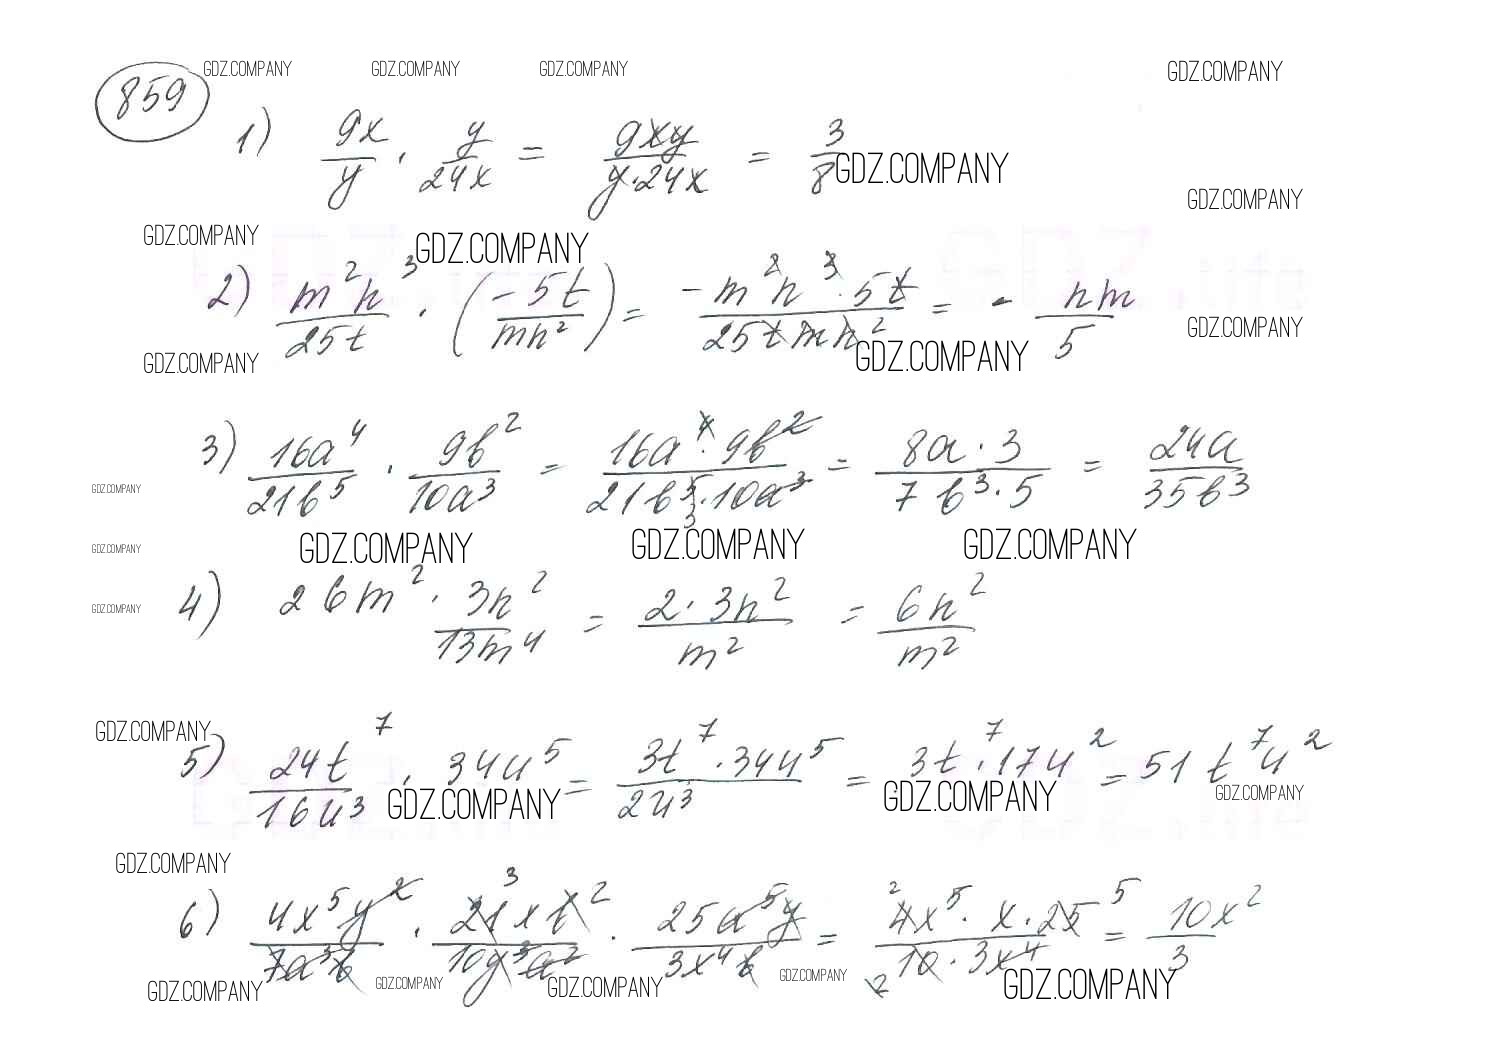 859
GDZ.COMPANY GDZ.COMPANY GDZ.COMPANY GDZ.COMPANY
1) 9x/y · y/24x = 9xy/y·24x = 3/8
GDZ.COMPANY
GDZ.COMPANY
GDZ.COMPANY GDZ.COMPANY
2) m²n³/25t · (-5t/mn²) = -m²n³·5t/25tmn² = - nm/5
GDZ.COMPANY
GDZ.COMPANY GDZ.COMPANY
3) 16a⁴/21b⁵ · 9b²/10a³ = 16a⁴·9b²/21b⁵·10a³ = 8a·3/7b³·5 = 24a/35b³
GDZ.COMPANY
GDZ.COMPANY GDZ.COMPANY GDZ.COMPANY GDZ.COMPANY
4) 26m² · 3n²/13m⁴ = 2·3n²/m² = 6n²/m²
GDZ.COMPANY
GDZ.COMPANY
5) 24t⁷/16u³ · 34u⁵ = 3t⁷·34u⁵/2u³ = 3t⁷·17u² = 51t⁷u²
GDZ.COMPANY GDZ.COMPANY GDZ.COMPANY
GDZ.COMPANY
6) 4x⁵y²/7a³b · 21xt²/10y³a² · 25a⁵y/3x⁴b = 4x⁵·x·25/10·3x⁴ = 10x²/3
GDZ.COMPANY GDZ.COMPANY GDZ.COMPANY GDZ.COMPANY GDZ.COMPANY